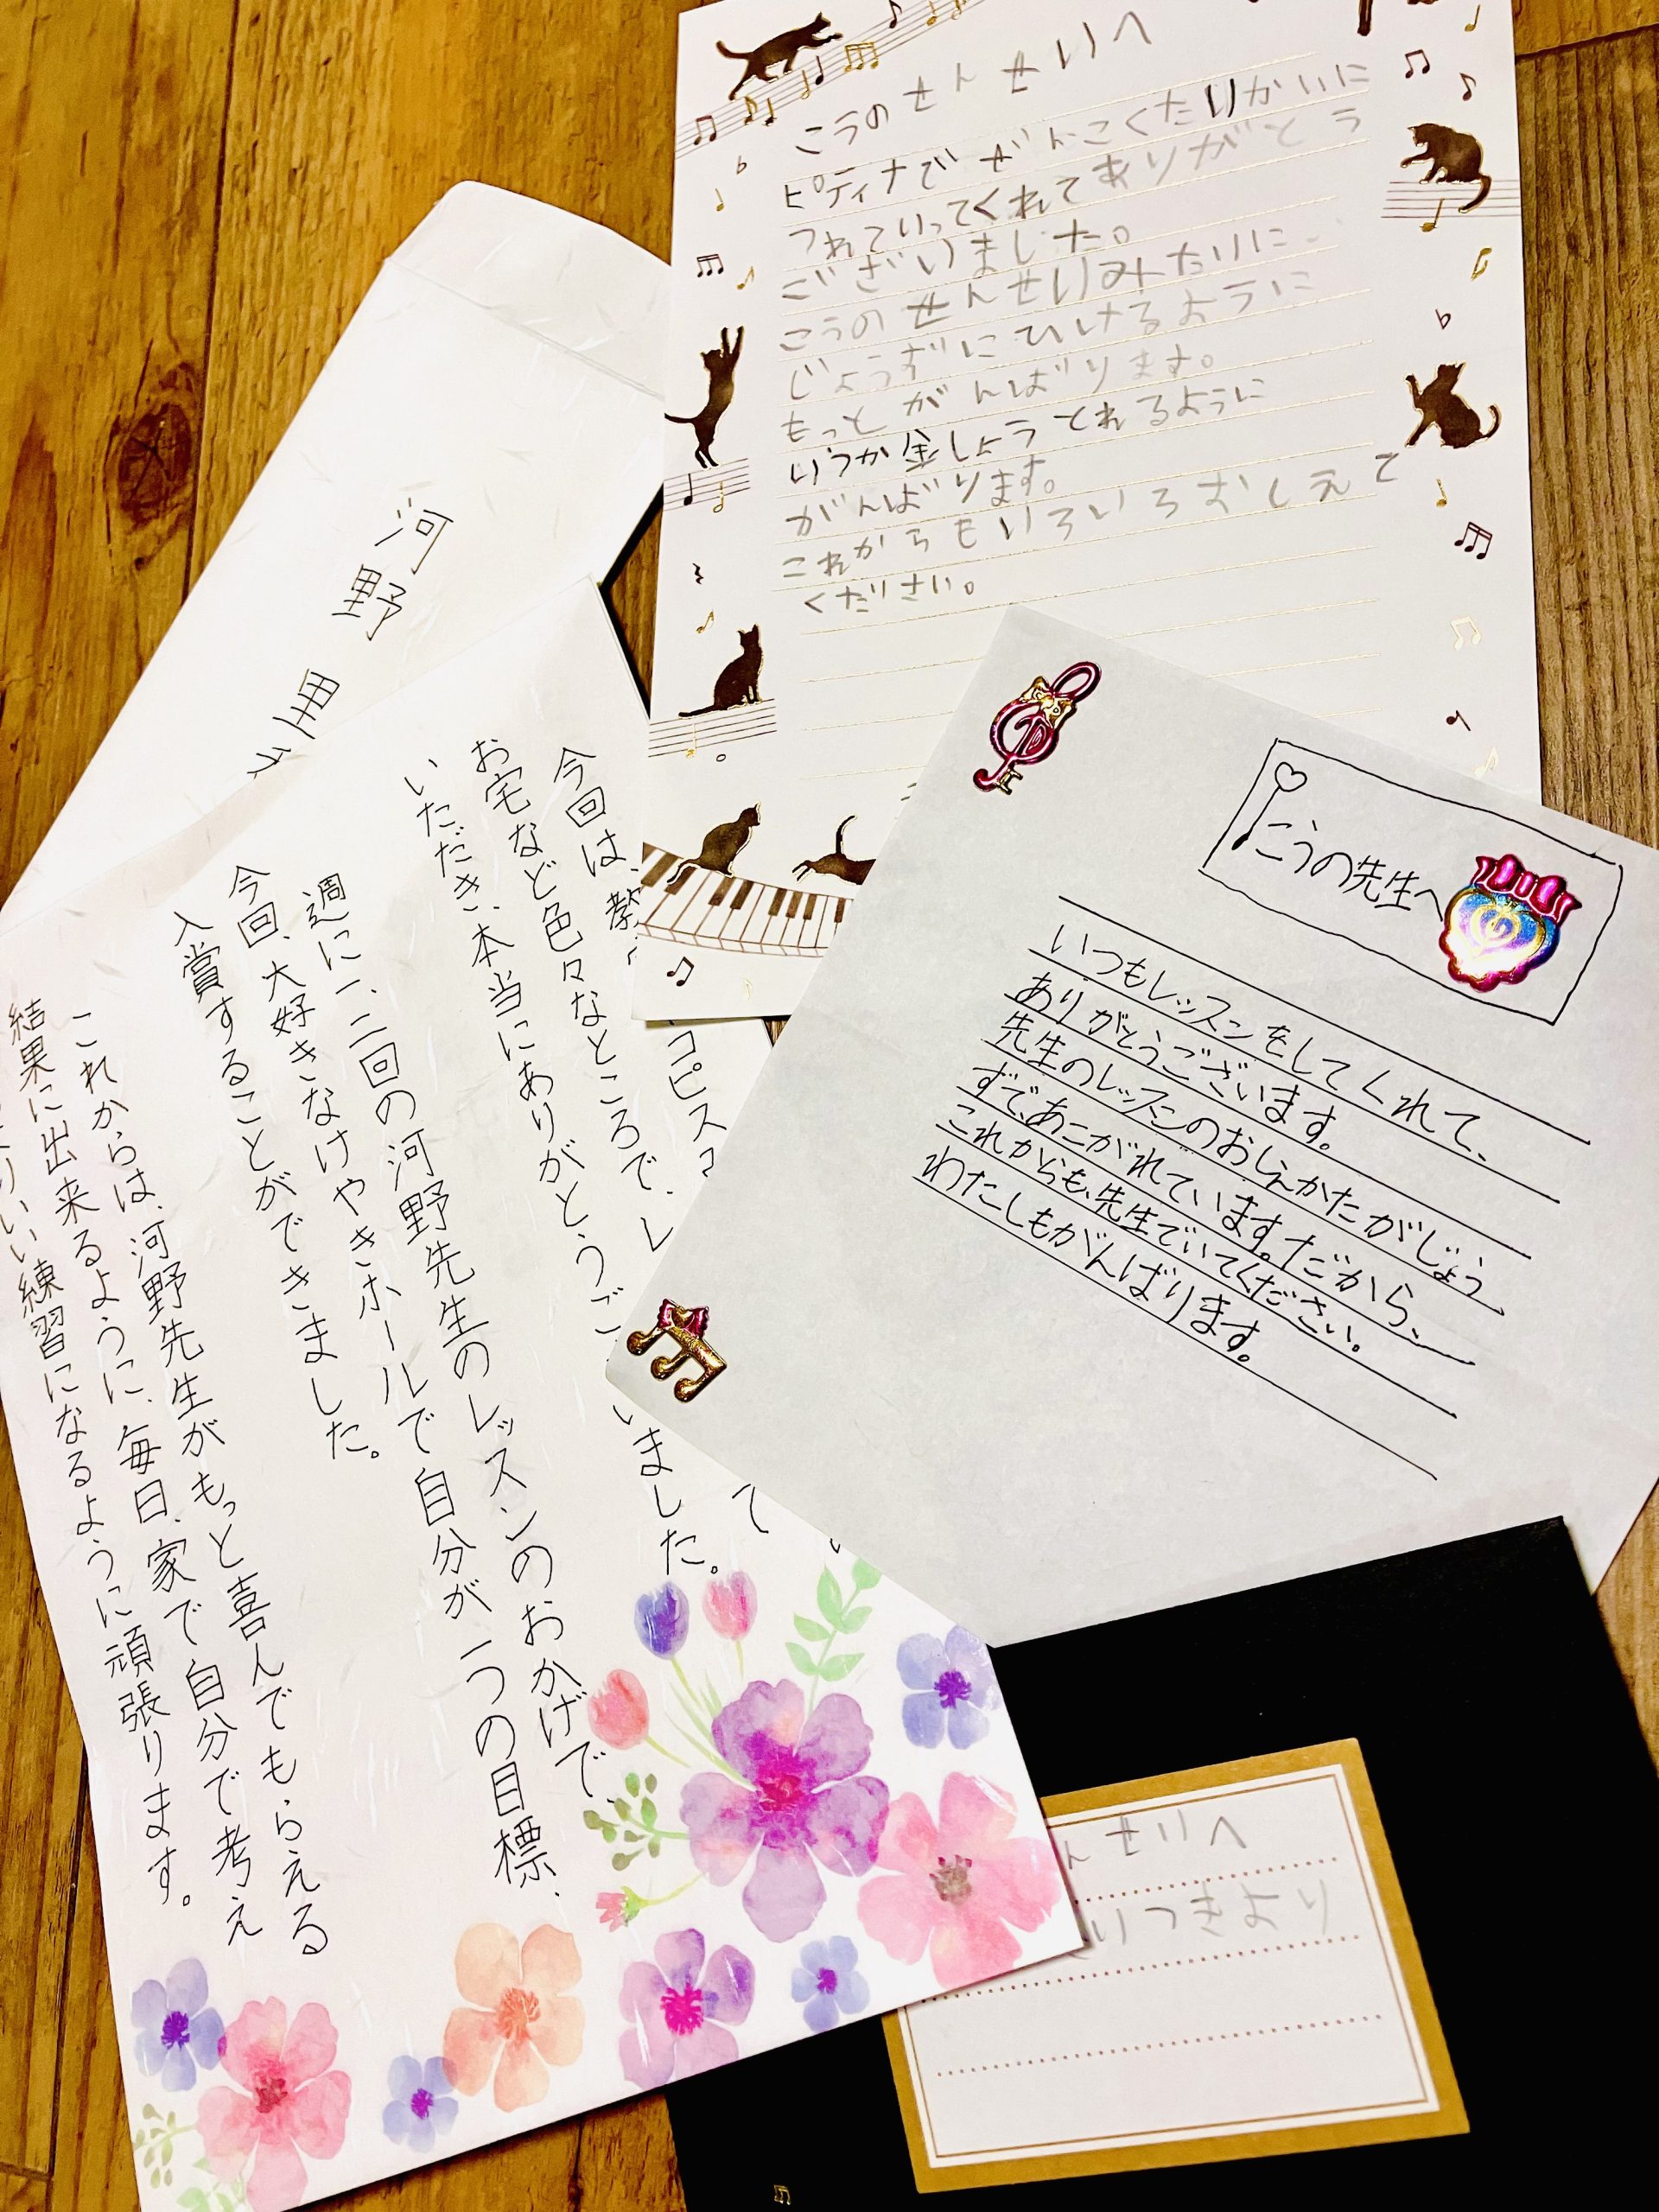 こうのせんせいへ
ピティナでぜんこくたいかいに
つれていってくれてありがとう
ございました。
こうのせんせいみたいに
じょうずにひけるように
もっとがんばります。
いつか金しょうとれるように
がんばります。
これからもいろいろおしえて
ください。
河野
こうの先生へ
いつもレッスンをしてくれて、
ありがとうございます。
先生のレッスンのおしえかたがじょう
ずで、あこがれています。だから、
これからも、先生でいてください。
わたしもがんばります。
コピス
て
今回は、
お宅など色々なところで、レ
いただき、本当にありがとうご
いました。
週に一、二回の河野先生のレッスンのおかげで、
今回、大好きなけやきホールで自分が一つの目標、
入賞することができました。
これからは、河野先生がもっと喜んでもらえる
結果に出来るように、毎日、家で自分で考え
いい練習になるように頑張ります。
んせいへ
いつきより